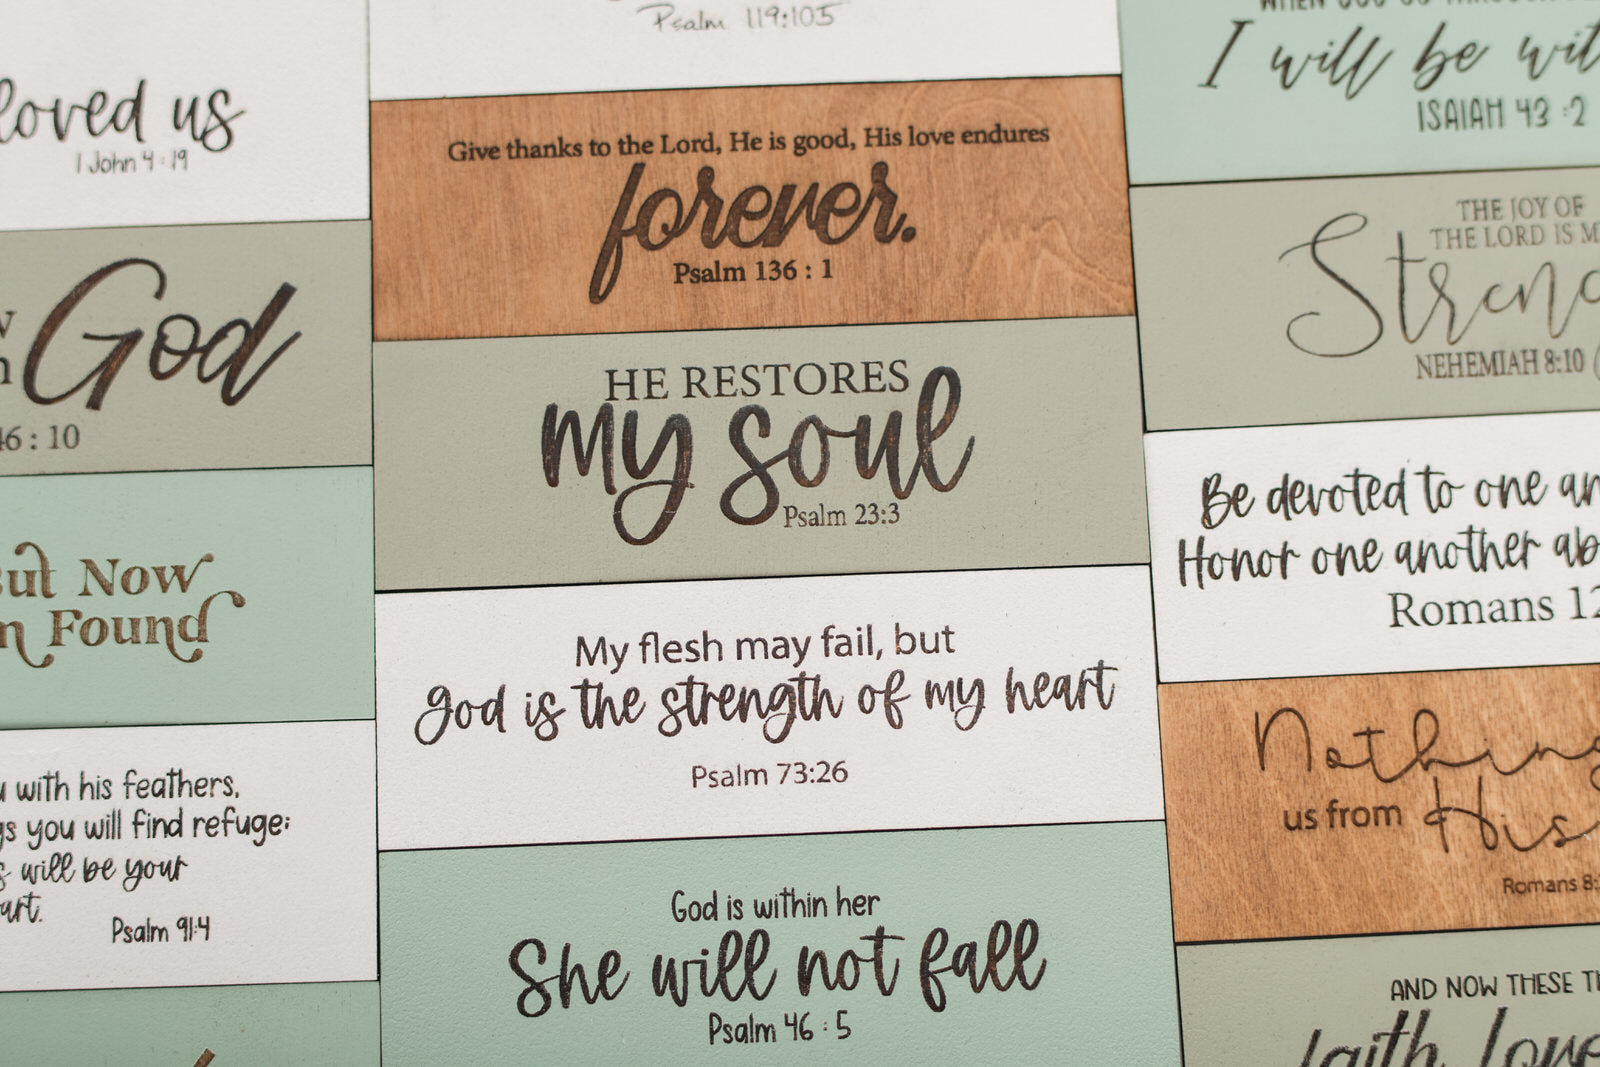 loved us
1 John 4:19
God
46 : 10
But Now
Found
with his feathers,
you will find refuge;
will be your
Psalm 91:4
Psalm 119:105
Give thanks to the Lord, He is good, His love endures
forever.
Psalm 136 : 1
HE RESTORES
my soul
Psalm 23:3
My flesh may fail, but
god is the strength of my heart
Psalm 73:26
God is within her
She will not fall
Psalm 46 : 5
I will be wit
ISAIAH 43 :2
THE JOY OF
THE LORD IS M
Streng
NEHEMIAH 8:10
Be devoted to one an
Honor one another ab
Romans 12
Nothing
us from His
Romans 8:
AND NOW THESE T
faith love